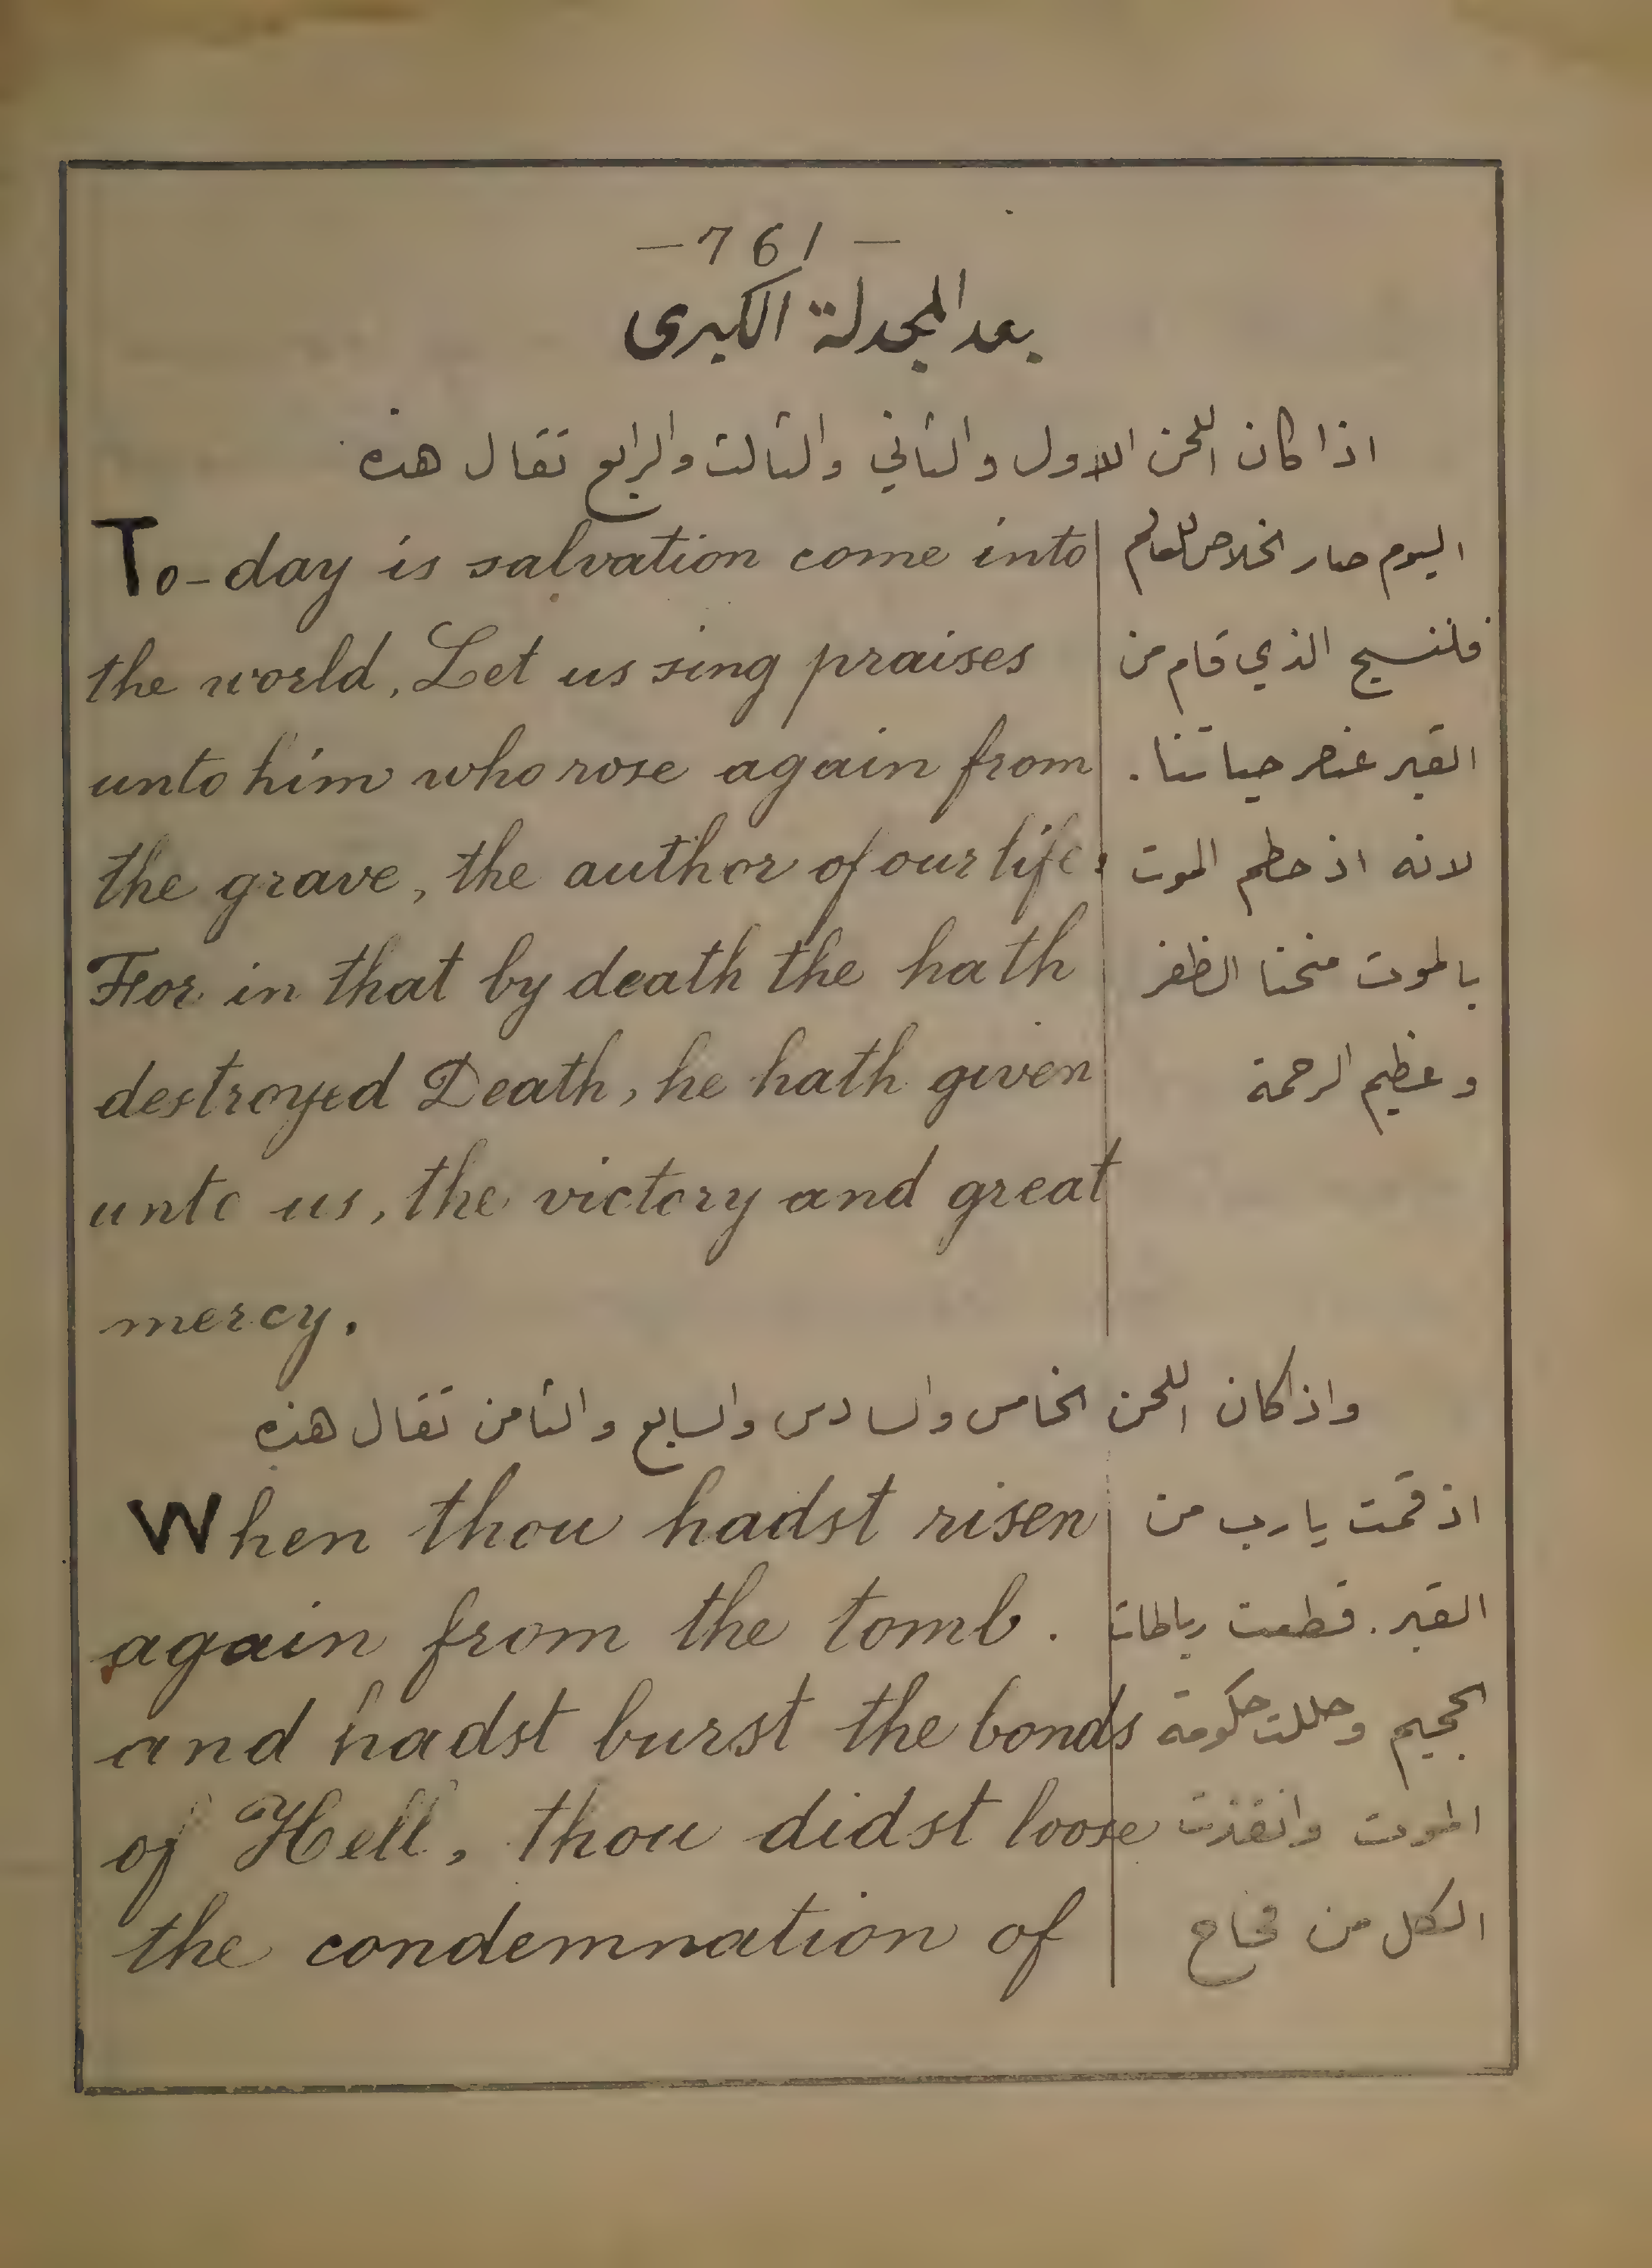 -761-
بعد المجدلة الكبرى
اذا كان اللحن الاول والثاني والثالث والرابع تقال هذه
To-day is salvation come into
the world, Let us sing praises
unto him who rose again from
the grave, the author of our life:
For in that by death the hath
destroyed Death, he hath given
unto us, the victory and great
mercy.
اليوم صار الخلاص للعالم
فلنسبح الذي قام من
القبر عنصر حياتنا.
لانه اذ حطم الموت
بالموت منحنا الظفر
وعظيم الرحمة
واذا كان اللحن الخامس والسادس والسابع والثامن تقال هذه
When thou hadst risen
again from the tomb.
and hadst burst the bonds
of Hell, thou didst loose
the condemnation of
اذ قمت يا رب من
القبر. قطعت رباطات
الجحيم وحللت حكومة
الموت وانقذت
الكل من فخاخ